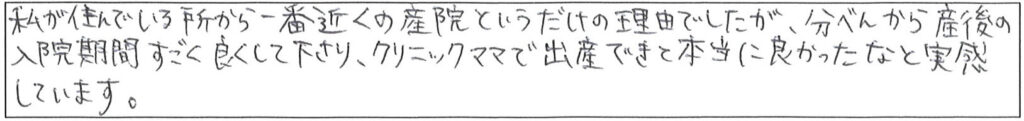 私が住んでいる所から一番近くの産院というだけの理由でしたが、分べんから産後の
入院期間すごく良くして下さり、クリニックママで出産できて本当に良かったなと実感
しています。